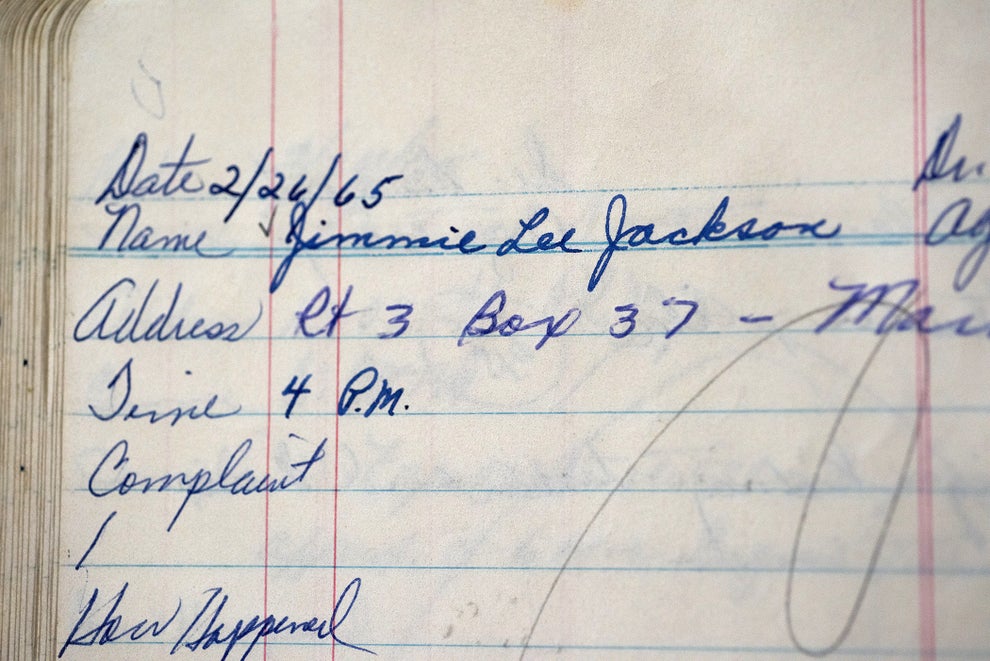 Date 2/26/65 Dr.
Name Jimmie Lee Jackson Ag
Address Rt 3 Box 37 - Mar
Time 4 P.M.
Complaint
1
How Happened